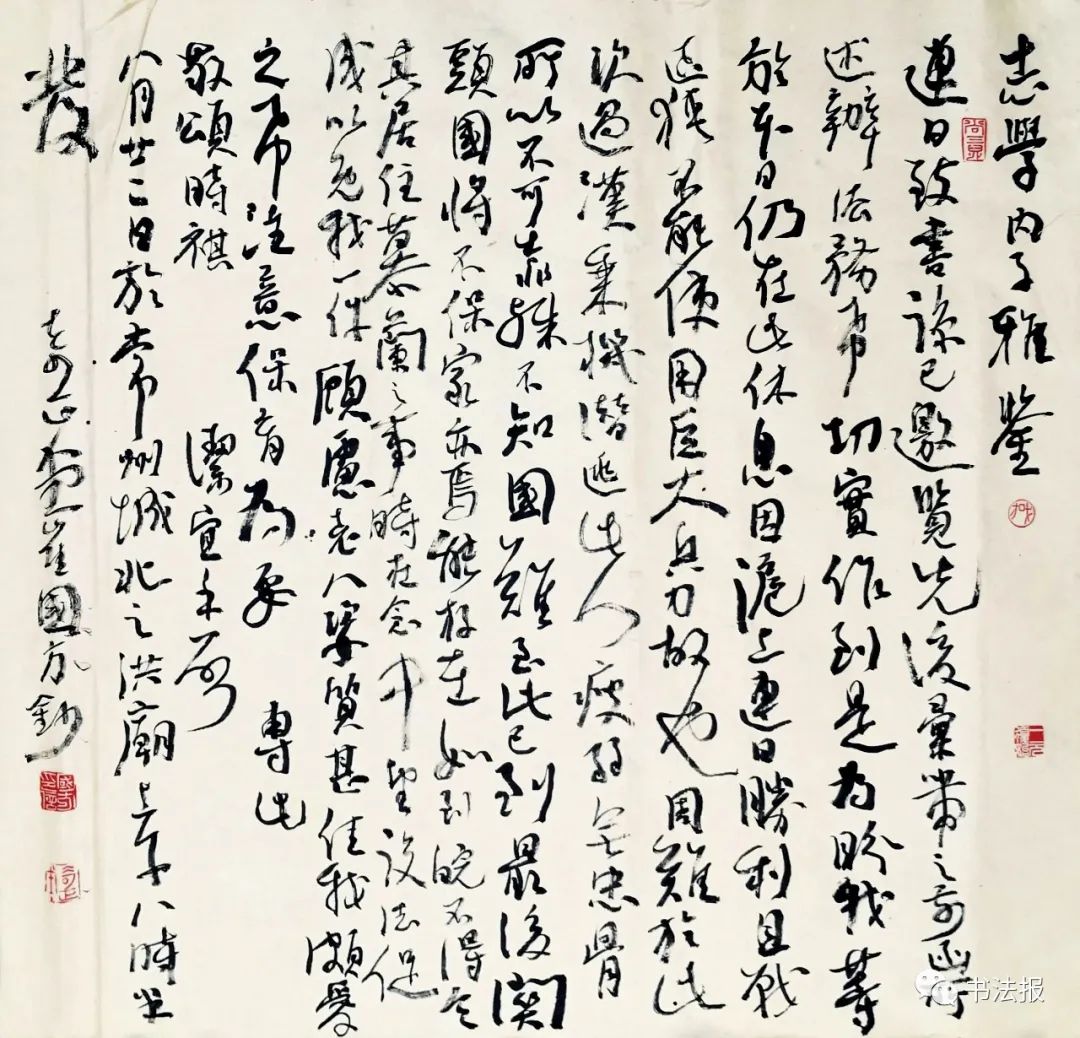 志學內子雅鑒
連日致書諒已邀覽先後彙帶之前函所
述辦法務希切實作到是為盼我等
於本日仍在此休息因滬上連日勝利且戰
區狹不能使用巨大兵力故也周難於此
次過漢乘機潛逃此人疲弱無忠骨
所以不可靠殊不知國難至此已到最後關
頭國將不保家亦焉能存在如到皖不得意
其居住慕蘭之事時在念中望設法促
成以免我一件顧慮老八資質甚佳我頗愛
之希注意保育為要 專此
敬頌時祺 潔宜手啟
八月廿二日於常州城北之洪廟上午八時半
發 崔國永鈔
书法报